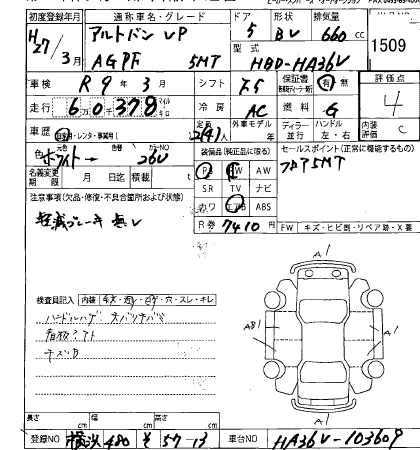 初度登録年月 通称車名・グレード ドア 形状 排気量
H27/3月 アルトバン VP 5 BV 660cc 1509
AGPF 5MT 型式 HBD-HA36V
車検 R9年3月 シフト F5 保証書 有・無 評価点
走行 60,378 マイル キロ 冷房 AC 燃料 G 4
車歴 自家用・レンタ・事業用( ) 定員 2(4)人 外車モデル 年 ディーラー 並行 ハンドル 左・右 内装評価 C
色 ホワイト → 26U 元色 色替 カラーNO
装備品(純正品に限る) セールスポイント(正常に確認するもの)
名義変更期限 月 日迄 積載 t PS PW AW フロア5MT
注意事項(欠品・修復・不具合箇所および状態) SR TV ナビ
軽減ブレーキ無し カワ エアB ABS
R券 7410円 FW キズ・ヒビ割・リペア跡・X要
検査員記入 内装 キズ・汚レ・コゲ・穴・スレ・キレ
看板アト
キズB
A1
AB1 A1
A1
長さ cm 幅 cm 高さ cm
登録NO 横浜 480 そ 57-13 車台NO HA36V-103609